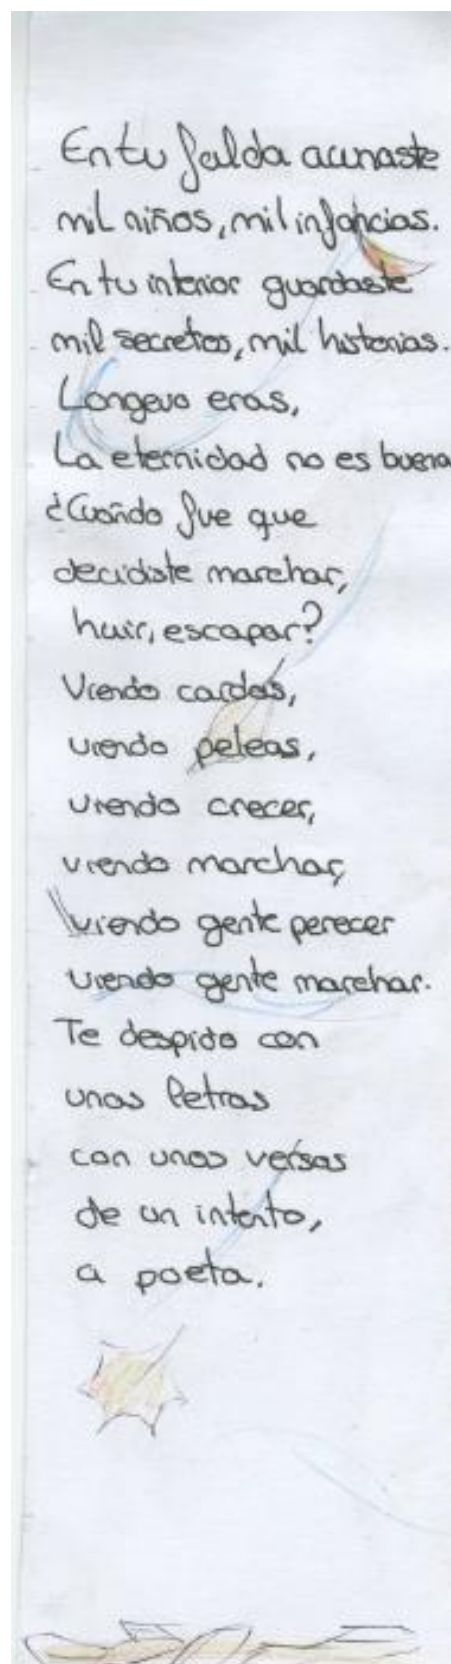 En tu falda acunaste
mil niños, mil infancias.
En tu interior guardaste
mil secretos, mil historias.
Longevo eras,
La eternidad no es buena
¿Cuándo fue que
decidiste marchar,
huir, escapar?
Viendo caídas,
viendo peleas,
viendo crecer,
viendo marchar,
viendo gente perecer
viendo gente marchar.
Te despido con
unas letras
con unos versos
de un intento,
a poeta.